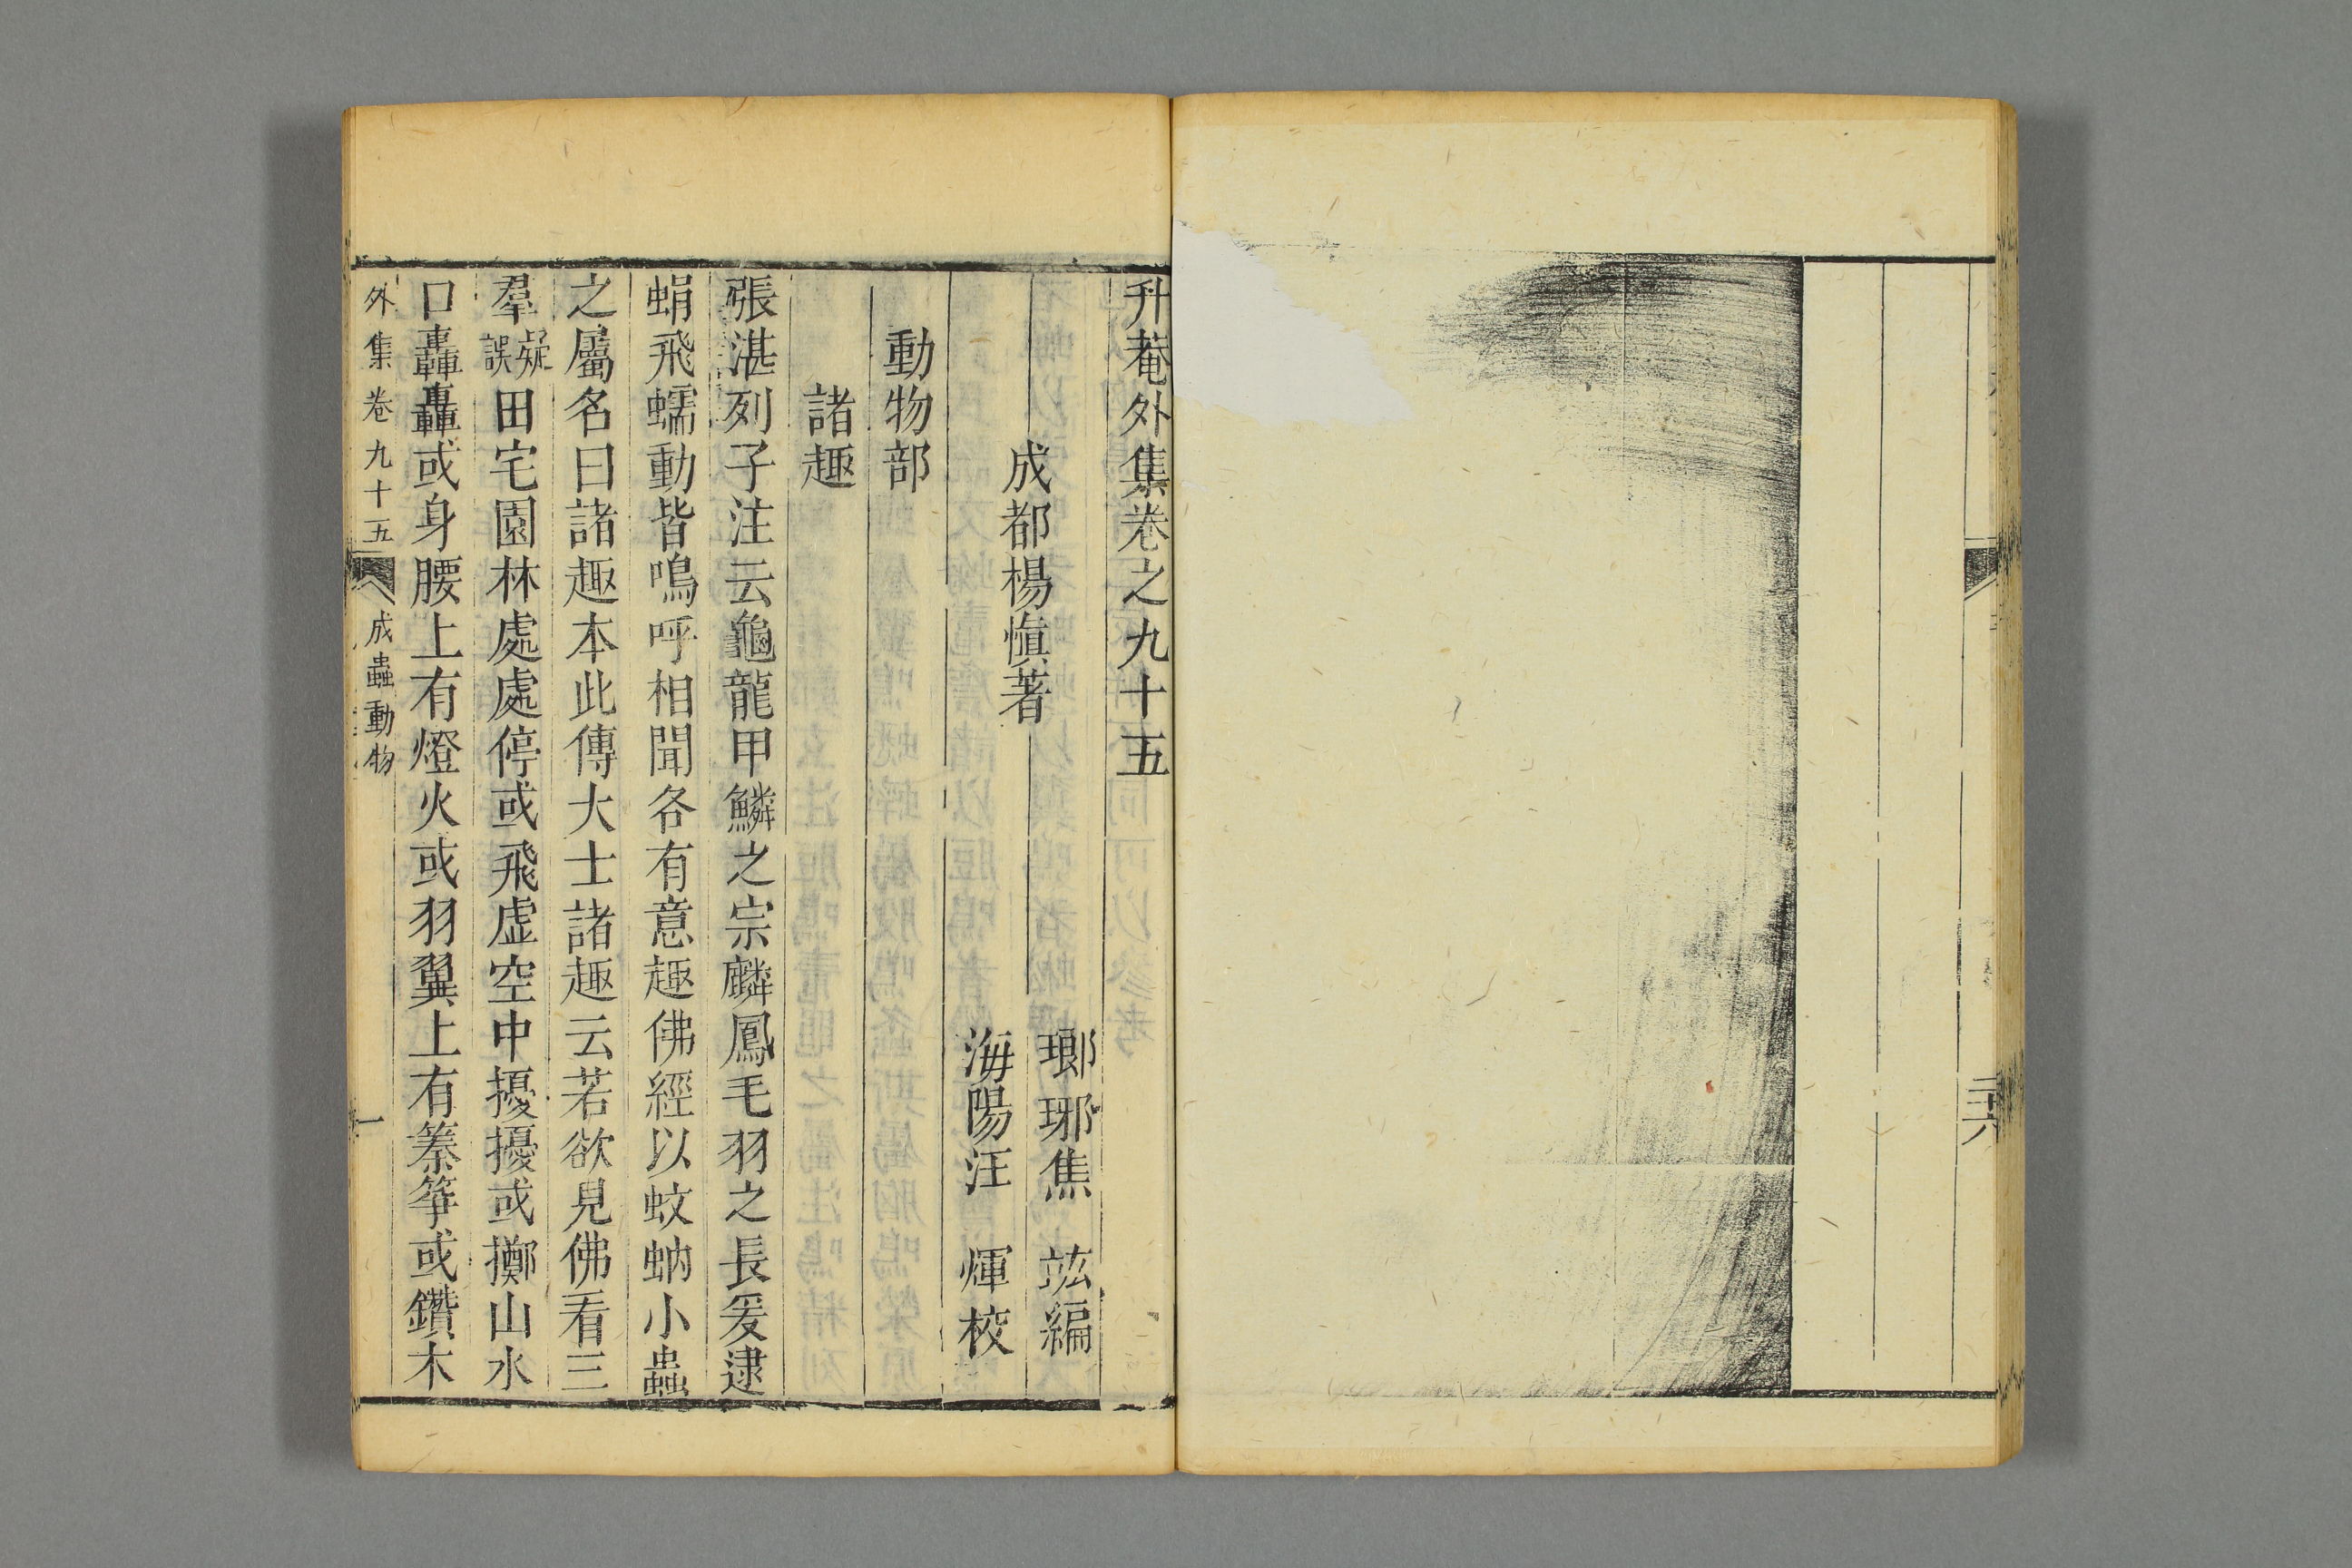 升菴外集卷之九十五
成都楊愼著
瑯琊焦 竑編
海陽汪 煇校
動物部
諸趣
張湛列子注云龜龍甲鱗之宗麟鳳毛羽之長爰逮
蜎飛蠕動皆鳴呼相聞各有意趣佛經以蚊蚋小蟲
之屬名曰諸趣本此傅大士諸趣云若欲見佛看三
羣疑誤田宅園林處處停或飛虛空中擾擾或擲山水
口轟轟或身腰上有燈火或羽翼上有蓁箏或鑽木
外集卷九十五 成蟲動物 一